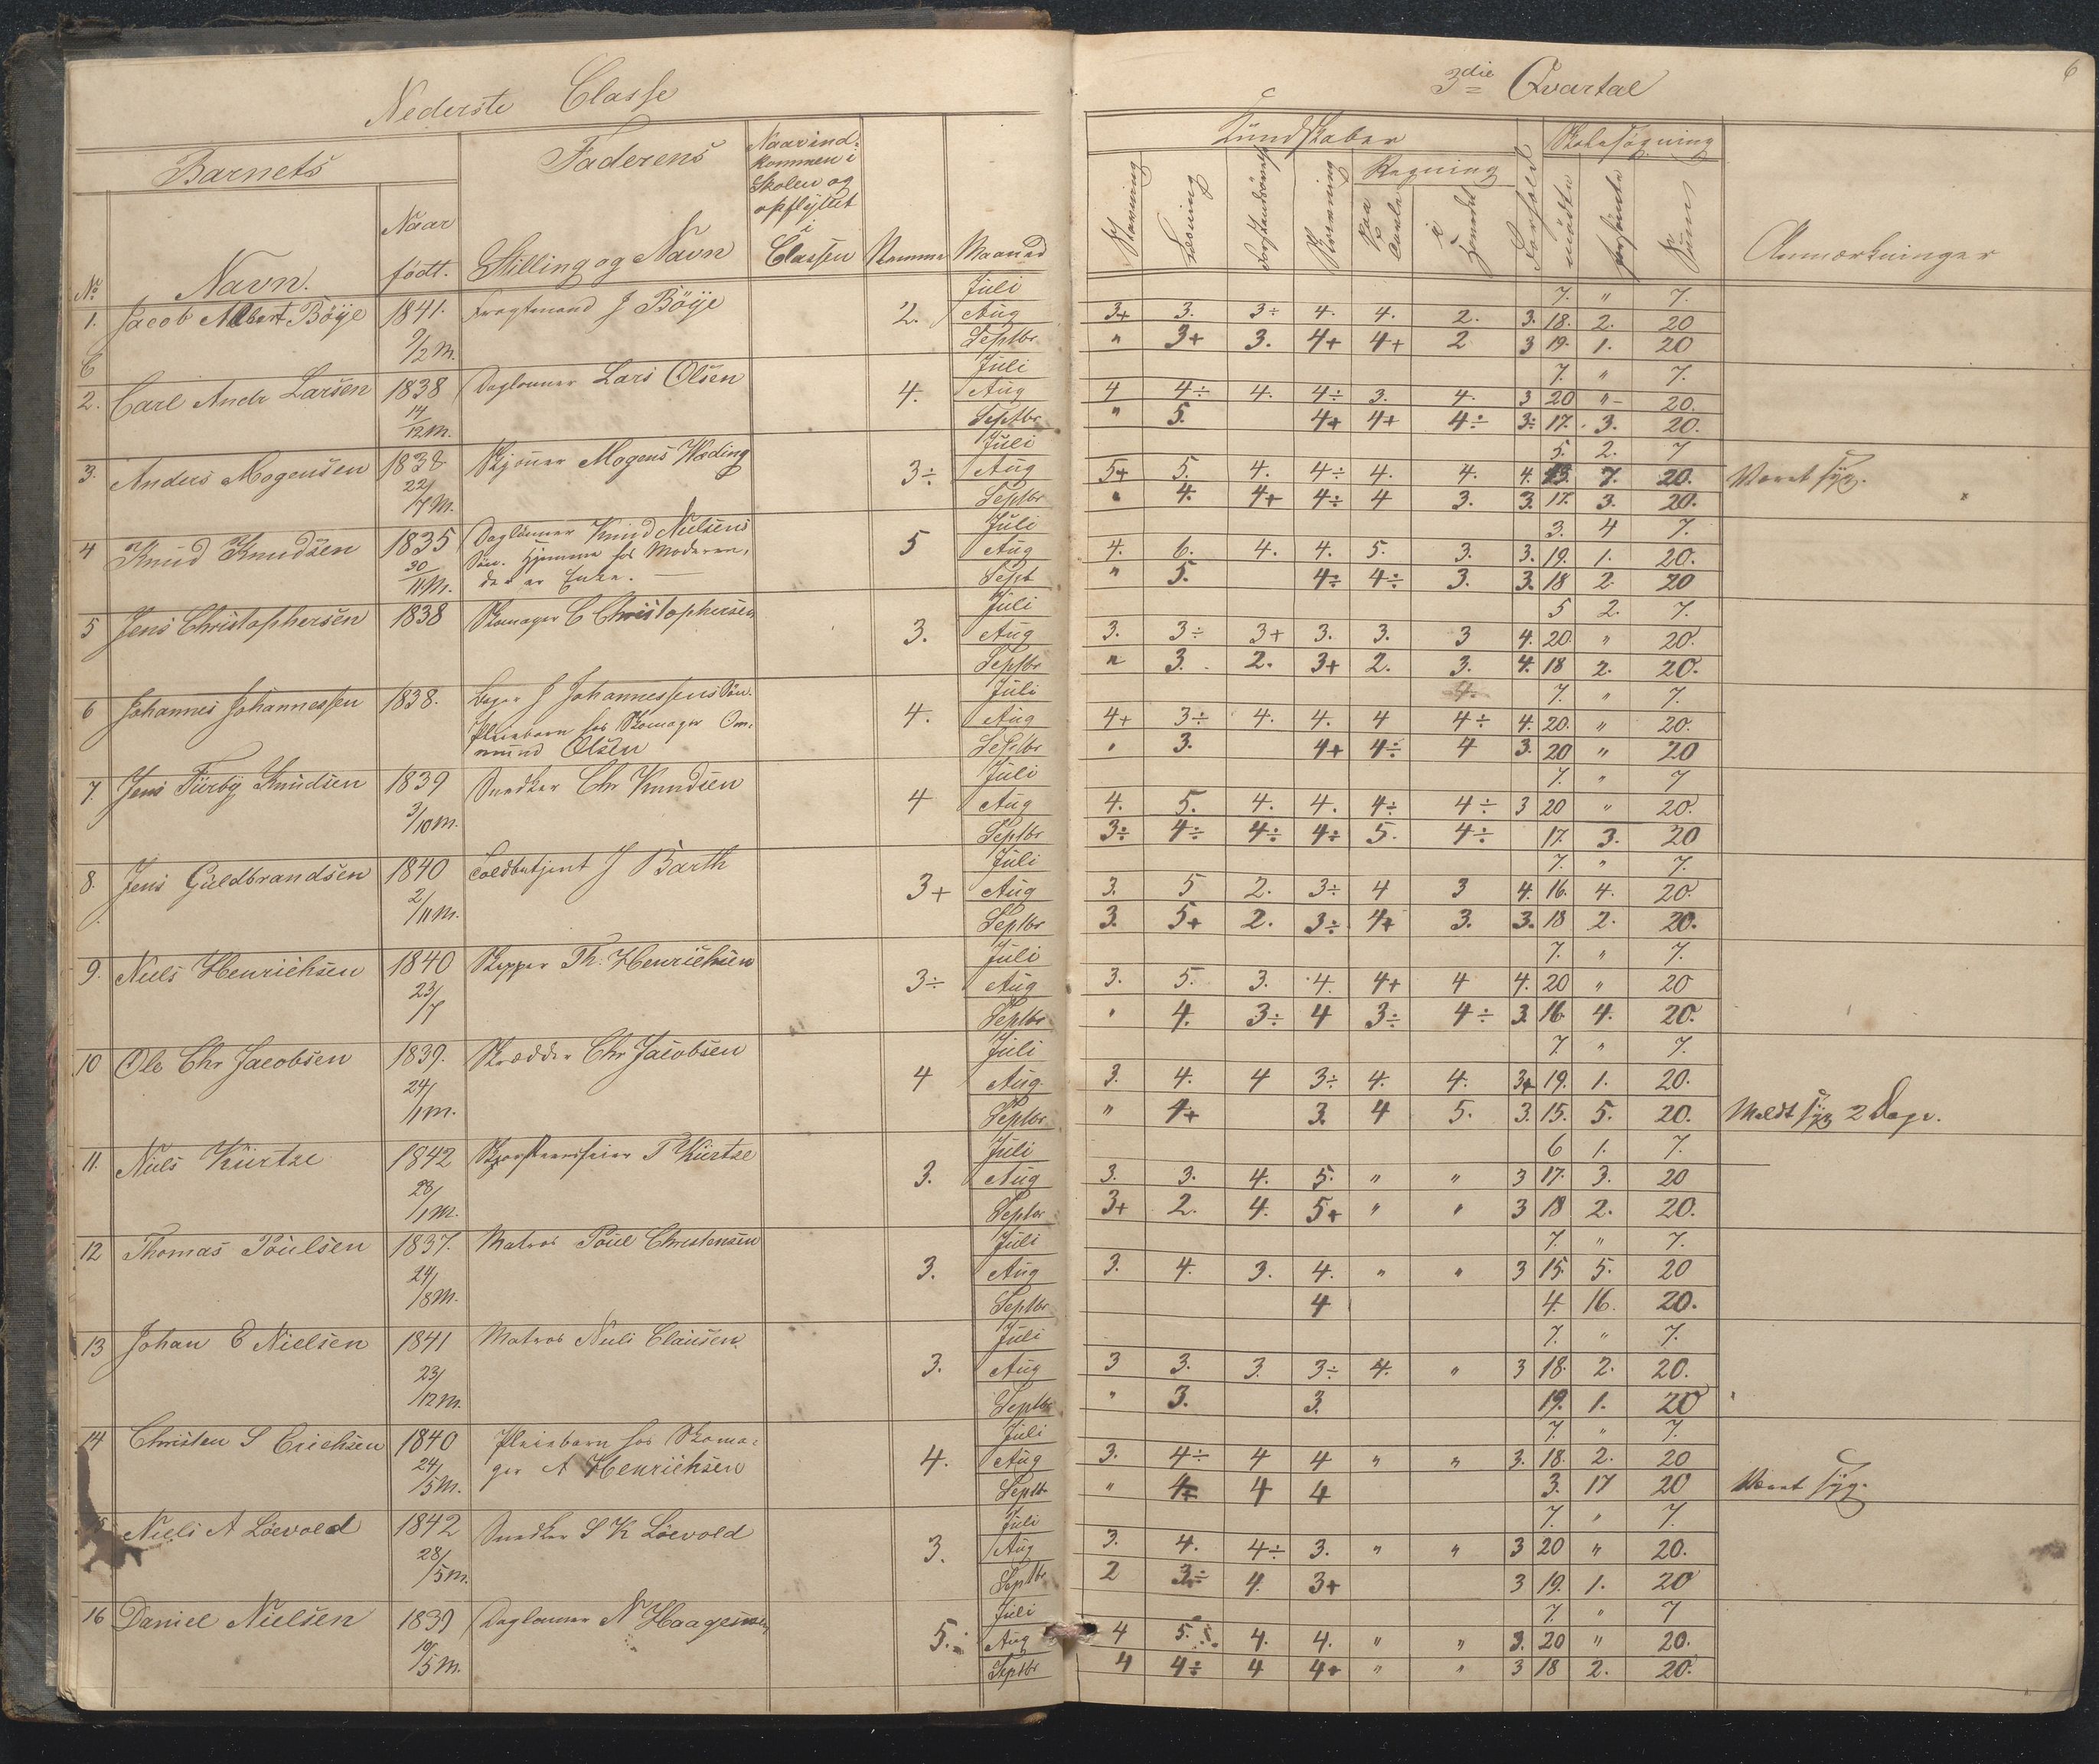 Nederste Classe
Barnets
Faderens
Naar ind-
kommen i
Skolen og
opflyttet
i
Classen
No
Navn.
Naar
födt.
Stilling og Navn
Maaned
1. Jacob Albert Böye 1841. Fragtmand J Böye 2. Juli
9/2 M. Aug
Septbr.
2. Carl Andr Larsen 1838 Daglönner Lars Olsen 4. Juli
14/12 M. Aug
Septbr
3. Anders Mogensen 1838 Mogens Wading 3÷ Juli
22/7 M. Aug
Septbr
4 Knud Knudsen 1835 Daglönner Knud Nielsens 5 Juli
30/11 M. Sön. Hjemme hos Moderen, Aug
der er Enke. Sept
5 Jens Christophersen 1838 Skomager C Christophersen 3. Juli
Aug
Septbr
6 Johannes Johannessen 1838. J Johannessens Sön. 4. Juli
Pleiebarn hos Skomager Om- Aug
mund Olsen Septbr
7. Jens Fürby Knudsen 1839 Snedker Chr Knudsen 4 Juli
3/10 M. Aug
Septbr
8. Jens Guldbrandsen 1840 Toldbetjent J Barth 3+ Juli
2/11 M. Aug
Septbr
9. Niels Henrichsen 1840 Skipper Th. Henrichsen 3÷ Juli
23/7 Aug
Septbr
10 Ole Chr Jacobsen 1839. Skrædder Chr Jacobsen 4 Juli
24/1 M. Aug.
Septbr.
11. Niels Kürtze 1842 Skorsteensfeier T Kürtze 3. Juli
28/1 M. Aug
Septbr
12 Thomas Poulsen 1837. Matros Poul Christensen 3. Juli
24/8 M. Aug
Septbr
13 Johan E Nielsen 1841 Matros Niels Clausen. 3. Juli
23/12 M. Aug
Septbr
14 Christen S Erichsen 1840 Pleiebarn hos Skoma- 4. Juli
24/5 M. ger A Henrichsen Aug
Septbr
Niels A Löevold 1842 Snedker S K Löevold 3. Juli
28/5 M. Aug
Septbr
16 Daniel Nielsen 1839 Daglonner N Haagensen 5. Juli
19/5 M. Aug
Septbr
6
3die Qvartal
Kundskaber
Skolesøgning
Stavning
Læsning
Skrivning
Regning
paa
Tavle
i
Hovedet
Forhold
mödte
forsömte
Sum
Anmærkninger
7. " 7.
3+ 3. 3÷ 4. 4. 2. 3. 18. 2. 20
" 3+ 3. 4+ 4+ 2 3 19. 1. 20
7. " 7.
4 4÷ 4. 4÷ 3. 4. 3 20 " 20.
" 5. 4+ 4+ 4÷ 3÷ 17. 3. 20.
5. 2. 7
5+ 5. 4. 4÷ 4. 4. 4. 13. 7. 20. Været syg.
" 4. 4+ 4÷ 4 3. 3. 17. 3. 20.
3. 4 7.
4. 6. 4. 4. 5. 3. 3. 19. 1. 20.
" 5. 4÷ 4÷ 3. 3. 18 2. 20
5 2. 7.
3. 3÷ 3+ 3. 3. 3 4. 20. " 20.
" 3. 2. 3+ 2. 3. 4. 18 2. 20.
7. " 7.
4+ 3÷ 4. 4. 4 4÷ 4. 20. " 20.
" 3. 4+ 4÷ 4 3. 20 " 20
7. " 7
4. 5. 4. 4. 4÷ 4÷ 3 20 " 20.
3÷ 4÷ 4÷ 4÷ 5. 4÷ 17. 3. 20
7. " 7.
3. 5 2. 3÷ 4 3 4. 16. 4. 20.
3. 5+ 2. 3÷ 4+ 3. 3. 18 2. 20.
7. " 7.
3. 5. 3. 4. 4+ 4 4. 20 " 20
" 4. 3÷ 4 3÷ 4÷ 3. 16. 4. 20.
7. " 7.
3. 4. 4 3÷ 4. 4. 3+ 19. 1. 20.
" 4+ 3. 4 5. 3. 15. 5. 20. Meldt syg 2 Dage.
6 1. 7.
3. 3. 4. 5. " " 3 17. 3. 20
3+ 2. 4. 5+ " " 3 18 2. 20.
7. " 7.
3. 4. 3. 4. " " 3 15. 5. 20
4 4. 16. 20.
7. " 7.
3 3. 3. 3÷ 4. " 3 18. 2. 20.
" 3. 3. 19. 1. 20
7. " 7.
3. 4÷ 4 4 " " 3. 18. 2. 20
" 4 4 3. 17 20 Været syg.
7. " 7.
3. 4. 4÷ 3. " " 3 20 " 20.
2 3÷ 4. 3+ 3 19. 1. 20
7. " 7
4 5. 4. 4. " " 3. 20 " 20.
4 4÷ 4 4+ " " 3 18 2. 20.